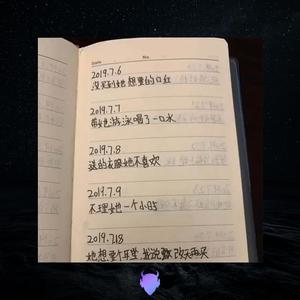 Date
No.
2019.7.6
没买到她想要的口红
2019.7.7
带她游泳喝了一口水
2019.7.8
送的衣服她不喜欢
2019.7.9
不理她一个小时
2019.7.18
她想要个耳坠,我说歇 改天再买